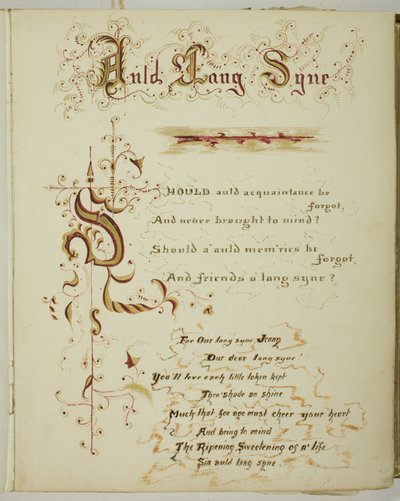 Auld Lang Syne
SHOULD auld acquaintance be
forgot,
And never brought to mind?
Should a' auld mem'ries be
forgot,
And friends o' lang syne?
For Our lang syne
Our dear lang syne!
You'll love each little token kept
Thro' shade an shine
Much that for age must cheer your heart
And bring to mind
The Ripening, Sweetening of a' life
Sin auld lang syne.